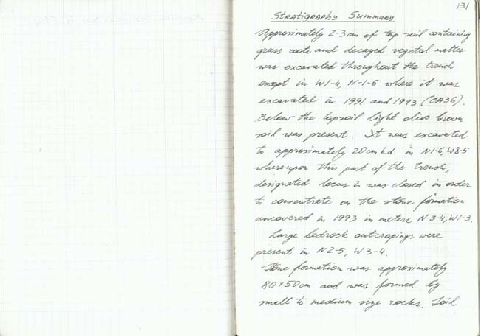 131
Stratigraphy Summary
Approximately 2-3 cm of top soil containing
grass roots and decayed vegetal matter
was excavated throughout the trench
except in W1-4, N-1-6 where it was
excavated in 1991 and 1993 (CA36).
Below the topsoil light olive brown
soil was present. It was excavated
to approximately 20 cm bd in N1-5, W3-5
whereupon this part of the trench,
designated locus was closed in order
to concentrate on the stone formation
uncovered in 1993 in meters N3-4, W1-3.
Large bedrock outcropings were
present in N2-5, W3-4.
Stone formation was approximately
80x50cm and was formed by
small to medium size rocks. Soil